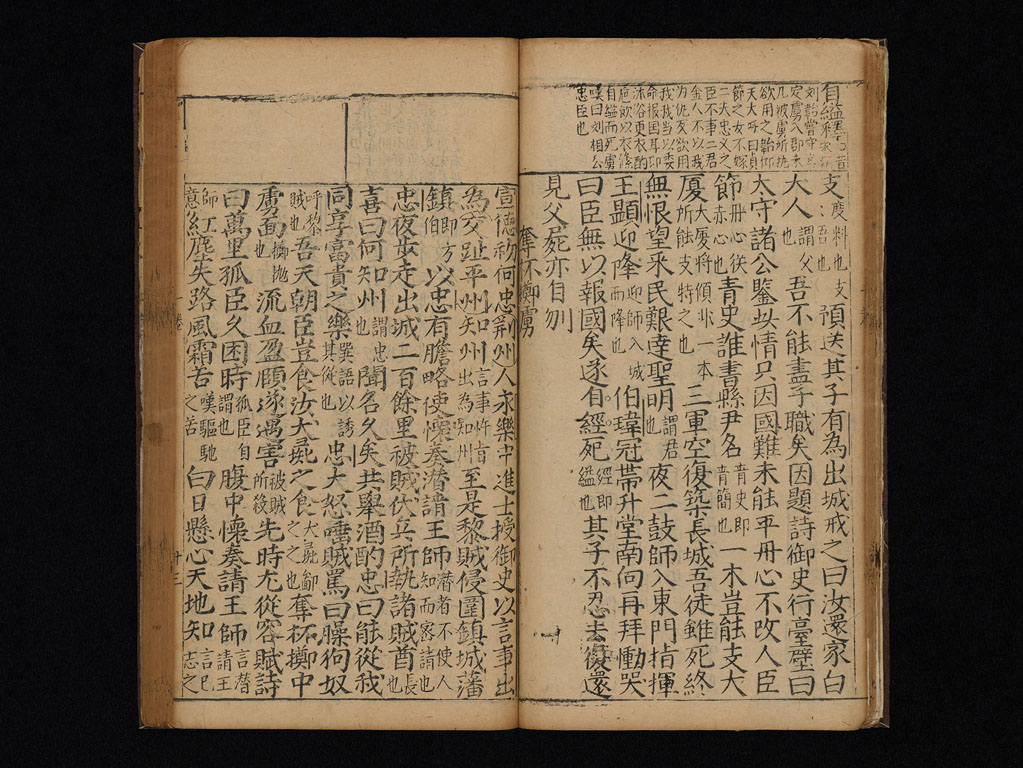 支〻吾也度料也支預送其子有為出城戒之曰汝還家白
大人謂父也吾不能盡子職矣因題詩御史行臺壁曰
太守諸公鑒此情只因國難未能平丹心不改人臣
節丹心猶赤心也青史誰書縣尹名青史即青簡也一木豈能支大
厦大厦將傾非一本所能支持之也三軍空復築長城吾徒雖死終
無恨望采民艱達聖明謂君也夜二鼓師入東門指揮
王顯迎降迎師入城而降也伯瑋冠帶升堂南向再拜慟哭
曰臣無以報國矣遂自經死經即縊也其子不忍去復還
見父屍亦自刎
奪杯擲虜
宣德初何忠荊州人永樂中進士授御史以言事出
為交趾平州知州言事忤旨出為知州矣至是黎賊侵圍鎮城藩
鎮即方伯以忠有膽略使懷奏潛請王師潛者不使人知而密請也
忠夜步走出城二百餘里被賊伏兵所執諸賊酋長也
喜曰何知州謂忠也聞名久矣共舉酒酌忠曰能從我
同享富貴之樂巽語以誘其從也忠大怒唾賊罵曰臊狗奴
呼黎賊也吾天朝臣豈食汝犬彘之食大彘即之之也奪杯擲中
虜面擲拋也流血盈頤遂遇害被賊所殺先時尤從容賦詩
曰萬里孤臣久困時孤臣自謂也腹中懷奏請王師言潛請王師
意紅塵失路風霜苦嘆驅馳之苦白日懸心天地知言己志之